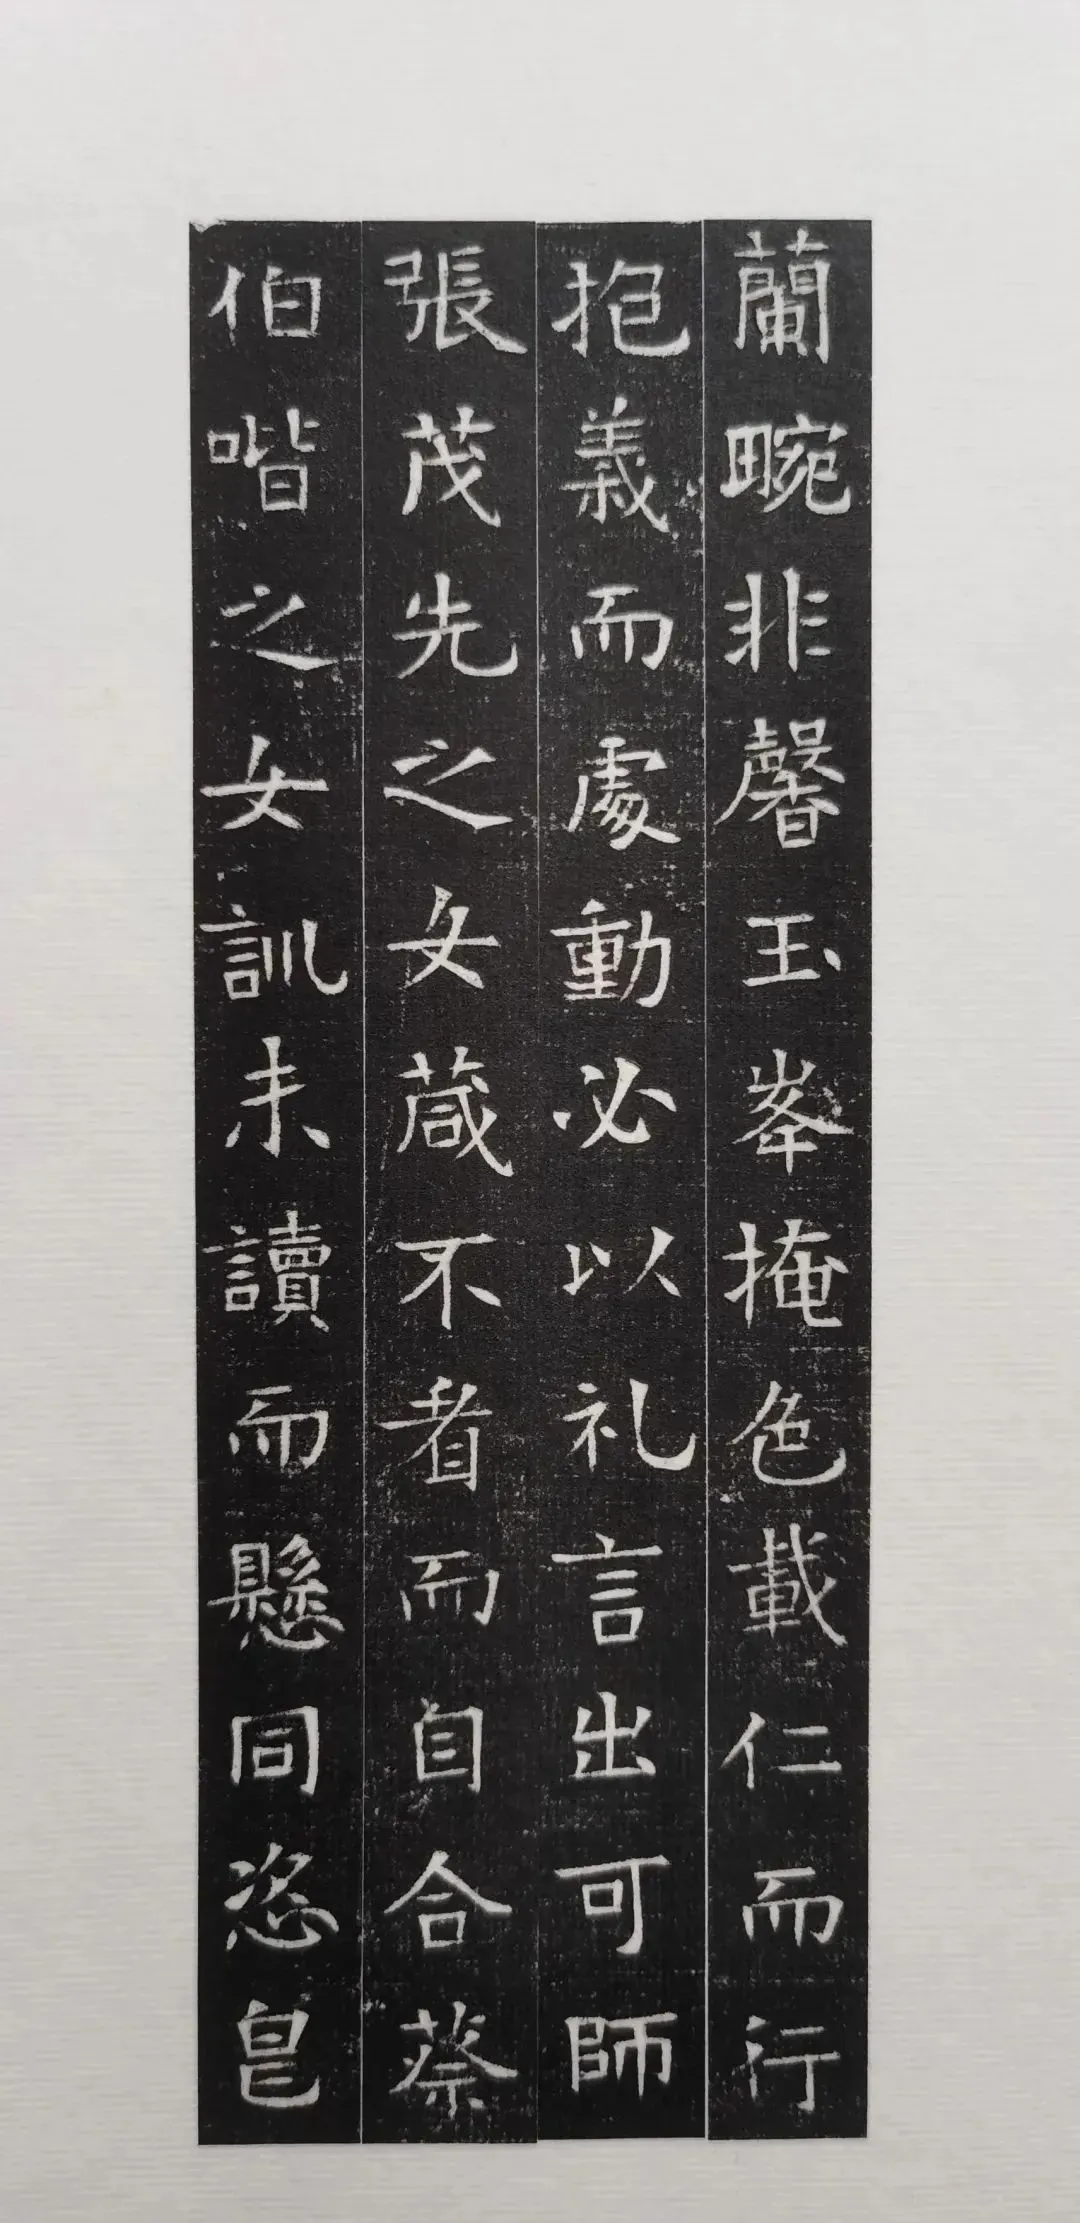 蘭畹非馨玉峯掩色載仁而行
抱義而處動必以礼言出可師
張茂先之女葴不看而自合蔡
伯喈之女訓未讀而懸同恣皃